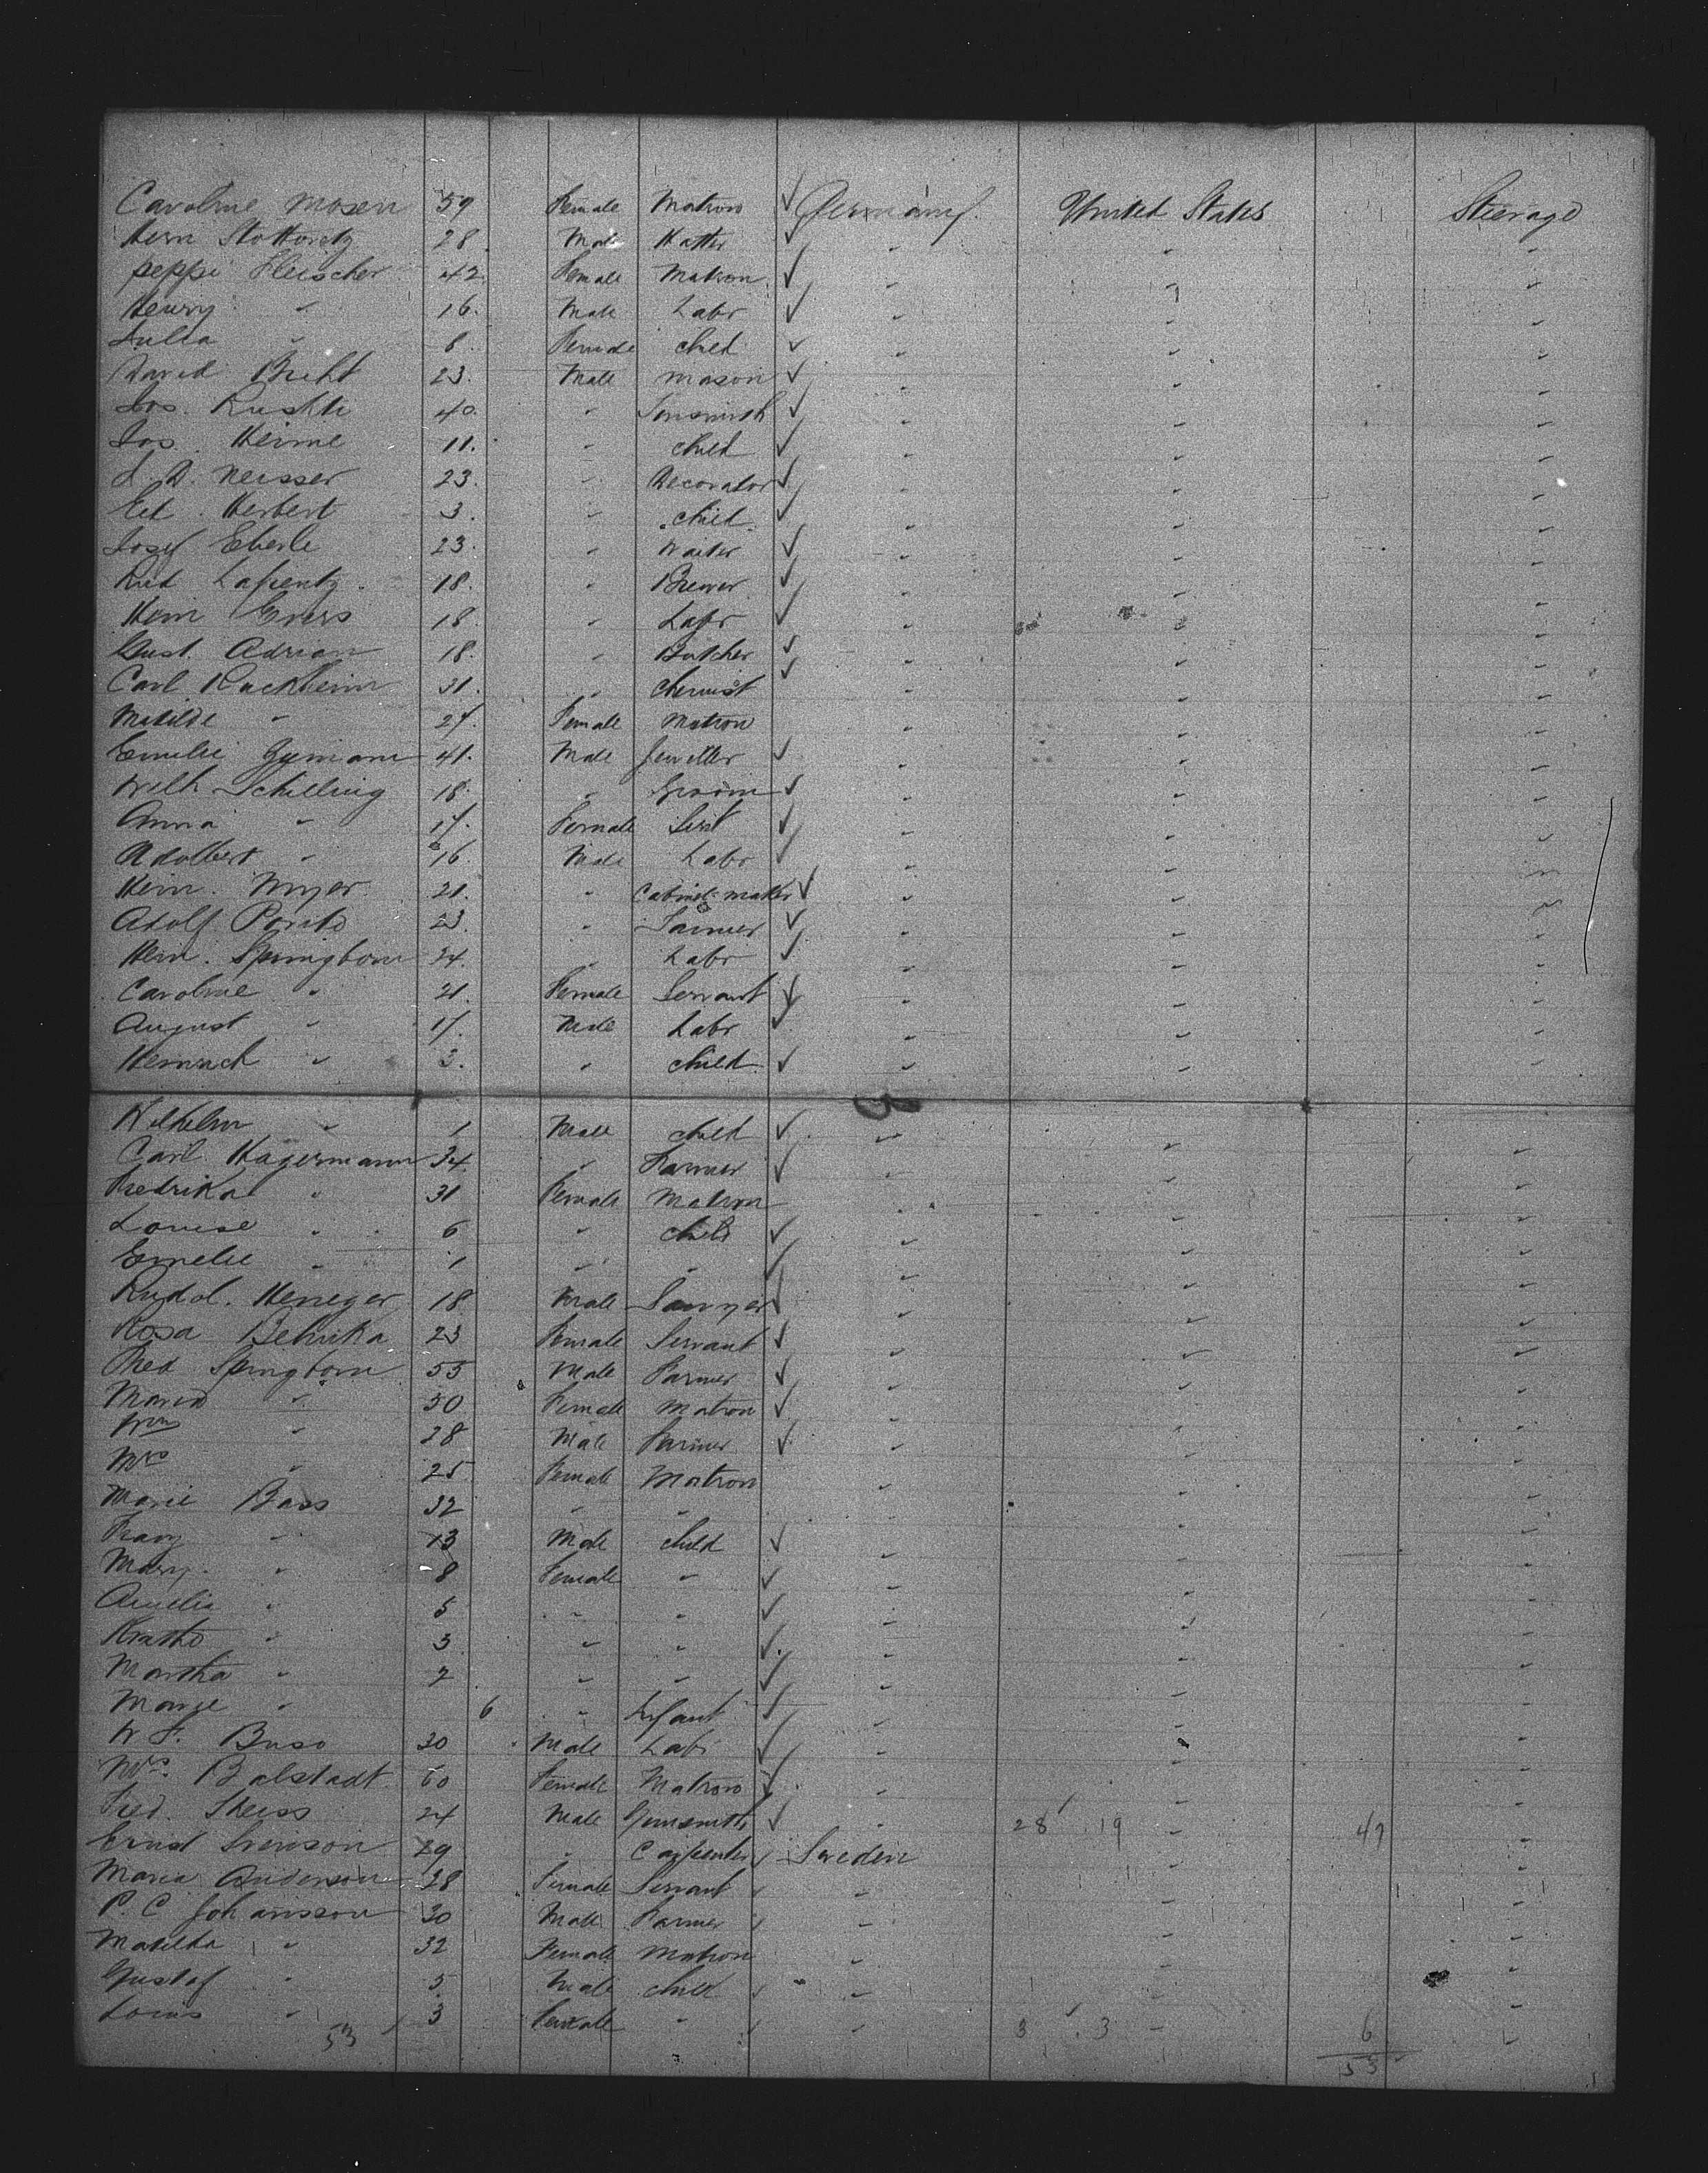 Caroline Mosen 59 Female Matron ✓ Germany. United States Steerage
Hern 28. Male Hatter ✓ " " "
Peppi Fleischer 42. Female Matron ✓ " " "
Henry " 16. Male Labr ✓ " " "
Julia " 8. Female child ✓ " " "
David Breht 23. Male mason ✓ " " "
Jos. Rushti 40. " ✓ " " "
Jos. Heime 11. " child ✓ " " "
J. D. Neisser 23. " Decorator ✓ " " "
Ed. Herbert 3. " child ✓ " " "
Josef Eberle 23. " Waiter ✓ " " "
Rud 18. " Brewer ✓ " " "
Hein Evers 18 " Labr ✓ " " "
Gust. Adrian 18. " Butcher ✓ " " "
Carl Rackheim 31. " chemist ✓ " " "
Matilde " 27. Female Matron " " "
Emilie 41. Male Jeweller ✓ " " "
Wilh Schilling 18. " Groom ✓ " " "
Anna " 17. Female Sert ✓ " " "
Adolbert " 16 Male Labr ✓ " " "
Hein. Myer 21. " Cabinet-maker ✓ " " "
Adolf 23. " ✓ " " "
Hein. Springborn 24. " Labr ✓ " " "
Caroline " 21. Female Servant ✓ " " "
August " 17. Male Labr ✓ " " "
Heinrich " 3. " child ✓ " " "
Wilhelm " 1 Male child ✓ " " "
Carl Hagermann 34. " Farmer ✓ " " "
Fredrika " 31 Female Matron " " "
Louise " 6 " child ✓ " " "
Emelie " 1 " " ✓ " " "
Rudol. Heneger 18 Male Sawyer ✓ " " "
Rosa Behnka 23 Female Servant ✓ " " "
Fred Springborn 55 Male Farmer ✓ " " "
Maria " 50 Female Matron ✓ " " "
Wm " 28 Male Farmer ✓ " " "
Mrs " 25 Female Matron " " "
Marie Bass 32 " " " "
Franz " 13 Male child ✓ " " "
Mary. " 8 Female " ✓ " " "
Amelia " 5 " " ✓ " " "
" 3 " " ✓ " " "
Martha " 2 " " ✓ " " "
" 6 " Infant ✓ " " "
W. F. 30 Male Labr ✓ " " "
Mrs. Balstadt 60 Female Matron ✓ " " "
Fred. 24 Male Gunsmith ✓ " 28 19 " 47 "
Ernst Svenson 29 " Carpenter ✓ Sweden " "
Maria Anderson 28 Female Servant ✓ " " "
P. C Johansson 30 Male Farmer ✓ " " "
Matilda " 32 Female Matron " " "
Gustaf " 5 Male child ✓ " " "
Louis " 3 Female " ✓ " 3 3 " 6 "
53 53